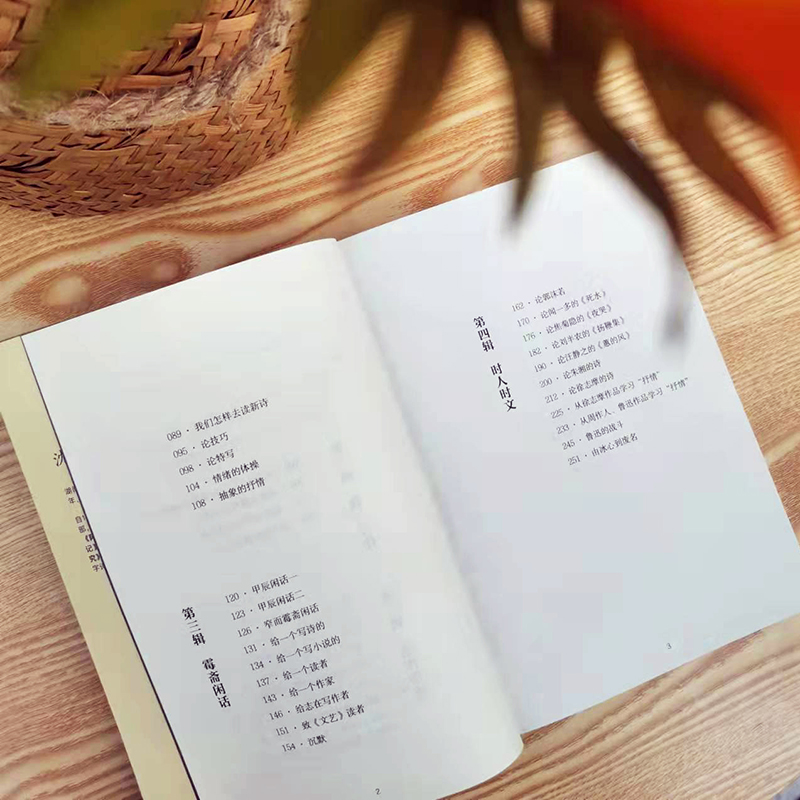 089 · 我们怎样去读新诗
095 · 论技巧
098 · 论特写
104 · 情绪的体操
108 · 抽象的抒情
第三辑 霉斋闲话
120 · 甲辰闲话一
123 · 甲辰闲话二
126 · 窄而霉斋闲话
131 · 给一个写诗的
134 · 给一个写小说的
137 · 给一个读者
143 · 给一个作家
146 · 给志在写作者
151 · 致《文艺》读者
154 · 沉默
2
第四辑 时人时文
162 · 论郭沫若
170 · 论闻一多的《死水》
176 · 论焦菊隐的《夜哭》
182 · 论刘半农的《扬鞭集》
190 · 论汪静之的《蕙的风》
200 · 论朱湘的诗
212 · 论徐志摩的诗
225 · 从徐志摩作品学习“抒情”
233 · 从周作人、鲁迅作品学习“抒情”
245 · 鲁迅的战斗
251 · 由冰心到废名
3